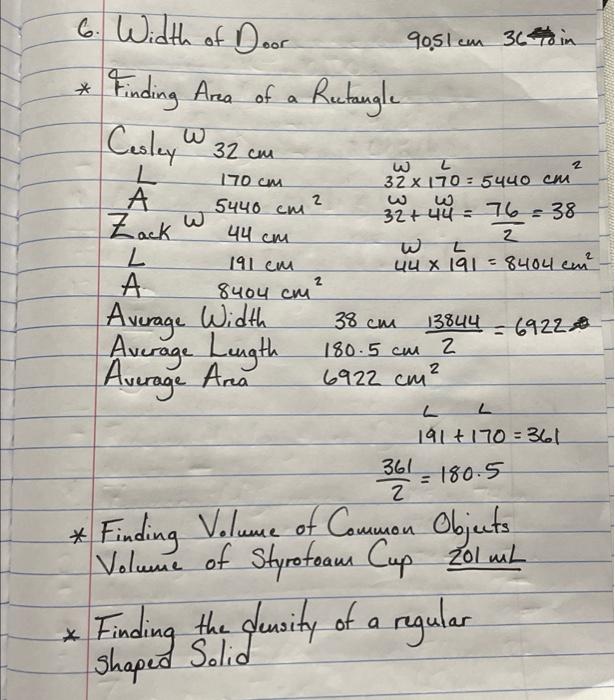 6. Width of Door 90.51 cm 36 in
* Finding Area of a Rectangle
Cesley W 32 cm
L 170 cm 32 W x 170 L = 5440 cm²
A 5440 cm² 32 W + 44 W = 76/2 = 38
Zack W 44 cm
L 191 cm 44 W x 191 L = 8404 cm²
A 8404 cm²
Average Width 38 cm 13844/2 = 6922
Average Length 180.5 cm
Average Area 6922 cm²
L L
191 + 170 = 361
361/2 = 180.5
* Finding Volume of Common Objects
Volume of Styrofoam Cup 201 mL
* Finding the density of a regular
shaped Solid